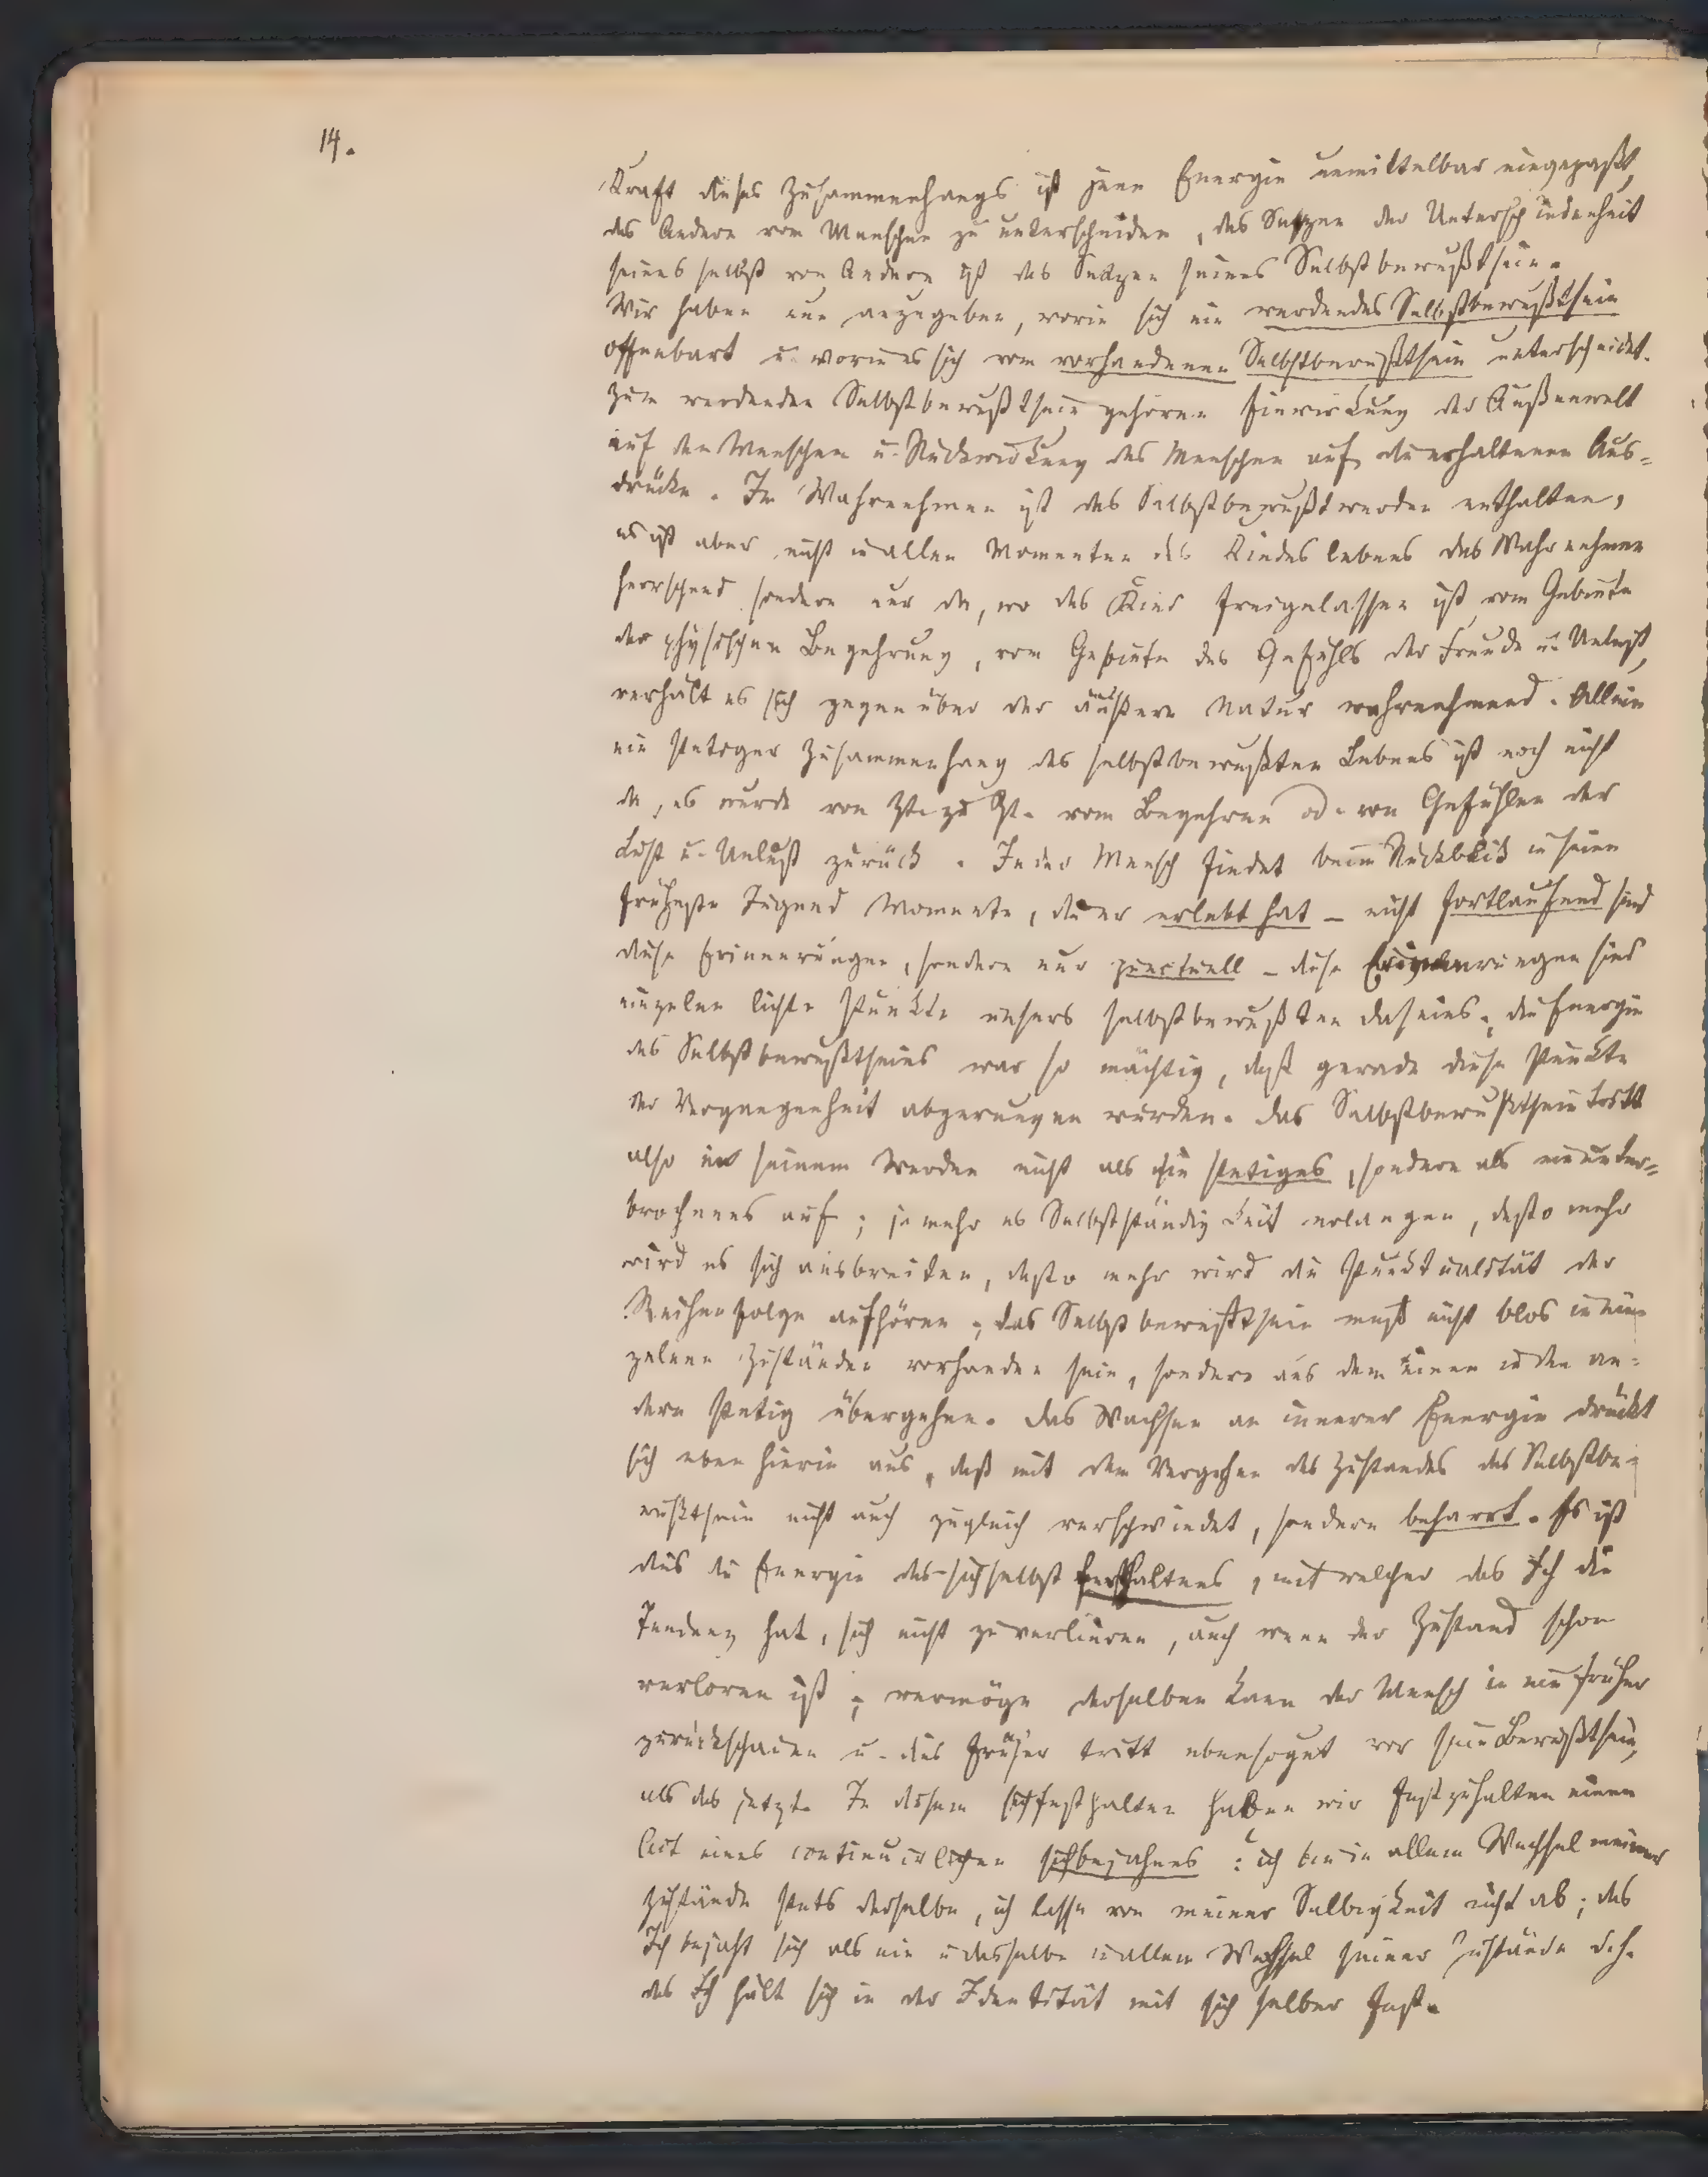 14.
Kraft dieses Zusammenhangs ist jene Energie unmittelbar eingepaßt,
das Andere vom Menschen zu unterscheiden, das Setzen der Unterschiedenheit
seines selbst von Andern ist das Setzen seines Selbstbewußtsein.
Wir haben nun anzugeben, worin sich ein werdendes Selbstbewußtsein
offenbart u. worin es sich vom vorhandenen Selbstbewußtsein unterscheidet.
Zum werdenden Selbstbewußtsein gehören Einwirkung der Außenwelt
auf den Menschen u. Rückwirkung des Menschen auf die erhaltenen Aus=
drücke. Im Wahrnehmen ist das Selbstbewußtwerden enthalten,
es ist aber nicht in allen Momenten des Kindeslebens das Wahrnehmen
herrschend sondern nur da, wo das Kind freigelassen ist vom Gebiete
der physischen Begehrung, vom Gebiete des Gefühls der Freude u. Unlust,
verhält es sich gegenüber der äußern Natur wahrnehmend. Allein
ein stetiger Zusammenhang des selbstbewußten Lebens ist noch nicht
da, es wurde von Zt. zu Zt. vom Begehren od. von Gefühlen der
Lust u. Unlust zurück. Jeder Mensch findet beim Rückblick in seine
früheste Jugend Momente, die er erlebt hat – nicht fortlaufend sind
diese Erinnerungen, sondern nur punctuell – diese Erinnerungen sind
einzelne lichte Punkte unsers selbstbewußten Daseins; die Energie
des Selbstbewußtseins war so mächtig, daß gerade diese Punkte
der Vergangenheit abgerungen wurden. Das Selbstbewußtsein tritt
also in seinem Werden nicht als ein stetiges, sondern als ein unter=
brochenes auf; je mehr es Selbstständigkeit erlangen, desto mehr
wird es sich ausbreiten, desto mehr wird die Punktualität der
Reihenfolge aufhören; das Selbstbewußtsein muß nicht blos in ein=
zelnen Zuständen vorhanden sein, sondern aus dem einen in den an=
dern stetig übergehen. Das Wachsen an innerer Energie drückt
sich eben hierin aus, daß mit dem Vergehen des Zustandes das Selbstbe=
wußtsein nicht auch zugleich verschwindet, sondern beharrt. Es ist
dies die Energie des sichselbst Festhaltens, mit welcher das Ich die
Tendenz hat, sich nicht zu verlieren, auch wenn der Zustand schon
verloren ist; vermöge derselben kann der Mensch in ein früher
zurückschauen u. dies früher tritt ebensogut vor sein Bewußtsein,
als das jetzt. In diesem sichfesthalten haben wir festzuhalten einen
Act eines continuirlichen sichbejahens: ich bin in allem Wechsel meiner
Zustände stets derselbe, ich lasse von meiner Selbigkeit nicht ab; das
Ich bejaht sich als ein u. dasselbe in allem Wechsel seiner Zustände d.h.
das Ich hält sich in der Identität mit sich selber fest.